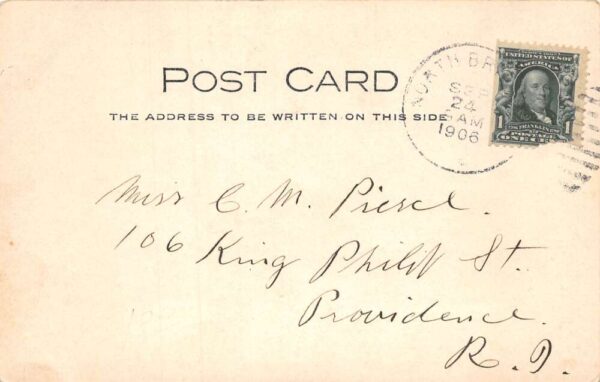 POST CARD
THE ADDRESS TO BE WRITTEN ON THIS SIDE
NORTH
SEP
24
AM
1906
UNITED STATES OF
AMERICA
FRANKLIN
1 POSTAGE 1
ONE CENT
Miss C. M.
106 King Philip St.
Providence.
R. I.